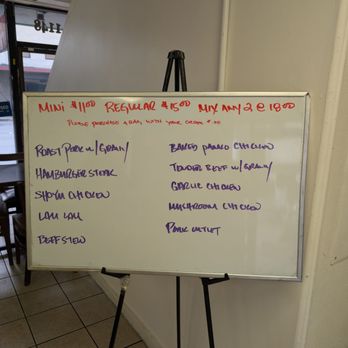 1148
MINI $11.00 REGULAR $15.00 MIX ANY 2 @ 18.00
PLEASE PURCHASE A BAG WITH YOUR ORDER
ROAST PORK W/GRAVY
HAMBURGER STEAK
SHOYU CHICKEN
LAU LAU
BEEF STEW
BAKED PANKO CHICKEN
TENDER BEEF W/GRAVY
GARLIC CHICKEN
MUSHROOM CHICKEN
PORK CUTLET